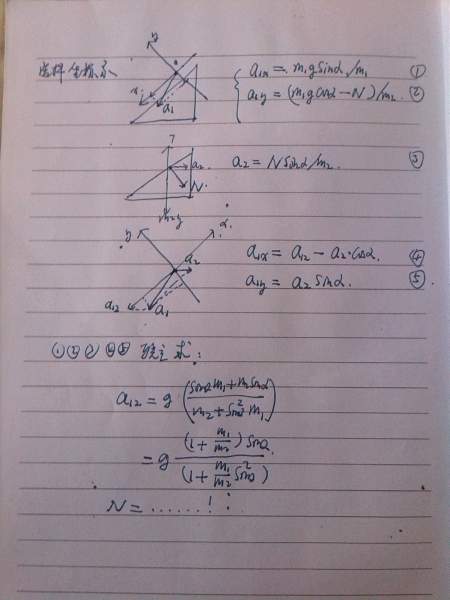 选择坐标系
y
x
a₁
a₁ₓ = m₁g sinα/m₁ ①
a₁y = (m₁g cosα − N)/m₂ ②
a₂
N
m₂g
a₂ = N sinα/m₂. ③
y
x.
a₂
a₁₂
a₁
a₁ₓ = a₁₂ − a₂·cosα. ④
a₁y = a₂ sinα. ⑤
①②③④⑤联立求:
a₁₂ = g (sinα m₁ + m₂ sinα / m₂ + sin²α m₁)
= g (1 + m₁/m₂) sinα / (1 + m₁/m₂ sin²α)
N = ......!